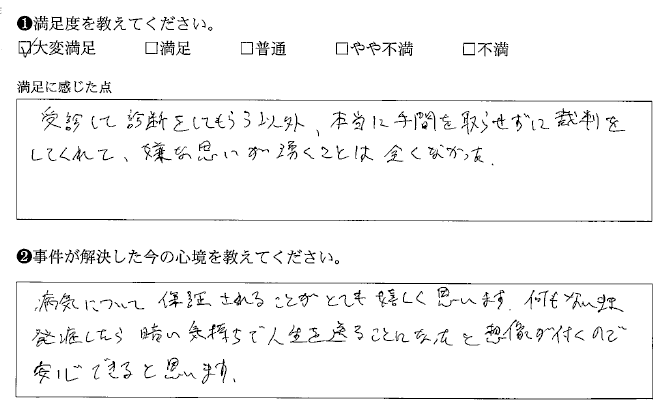 ❶満足度を教えてください。
☑大変満足 □満足 □普通 □やや不満 □不満
満足に感じた点
受診して診断をしてもらう以外、本当に手間を取らせずに裁判を
してくれて、嫌な思いが湧くことは全くなかった.
❷事件が解決した今の心境を教えてください。
病気について保証されることがとても嬉しく思います. 何もないまま
発症したら暗い気持ちで人生を送ることになったと想像が付くので
安心できると思います.